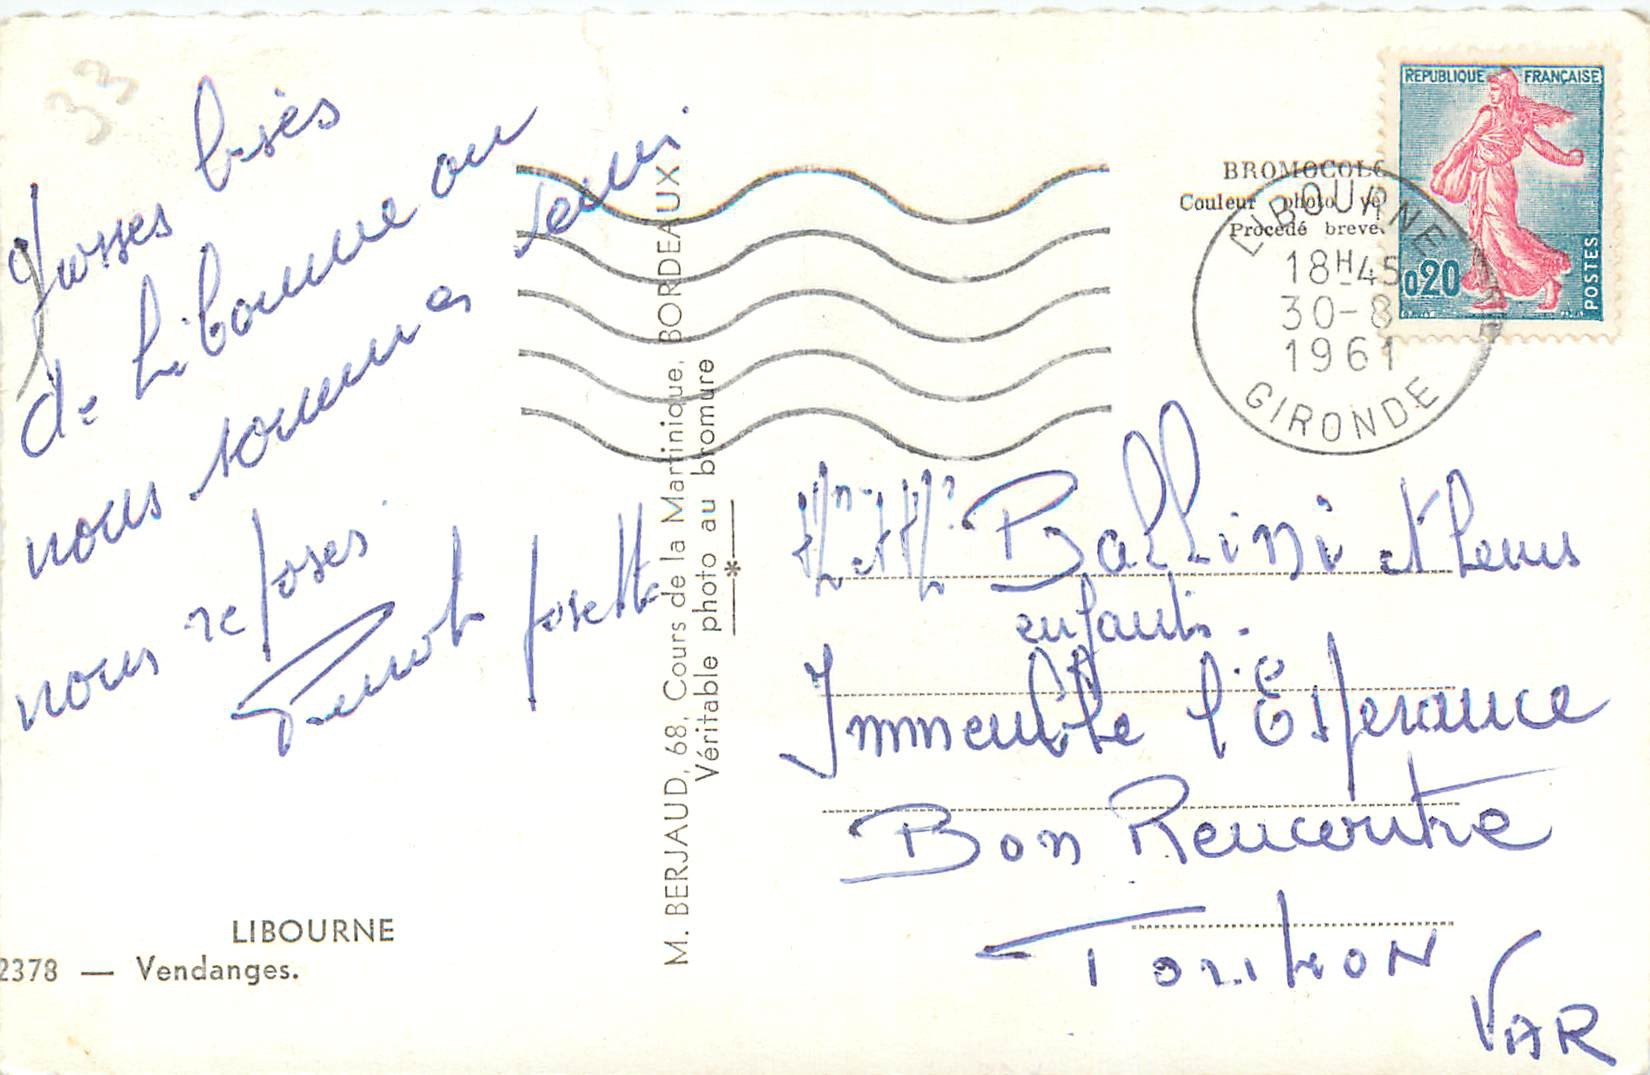 33
Grosses bises
de Libourne ou
nous sommes
nous reposes.
Josette
LIBOURNE
2378 — Vendanges.
M. BERJAUD, 68, Cours de la Martinique, BORDEAUX
Véritable photo au bromure
*
BROMOCOLO
Couleur photo vé
Procédé breve
REPUBLIQUE FRANÇAISE
0,20
POSTES
LIBOURNE
18H45
30-8
1961
GIRONDE
Mr et Mme Ballini et leurs
enfants.
Immeuble l'Esperance
Bon Rencontre
Toulon
VAR